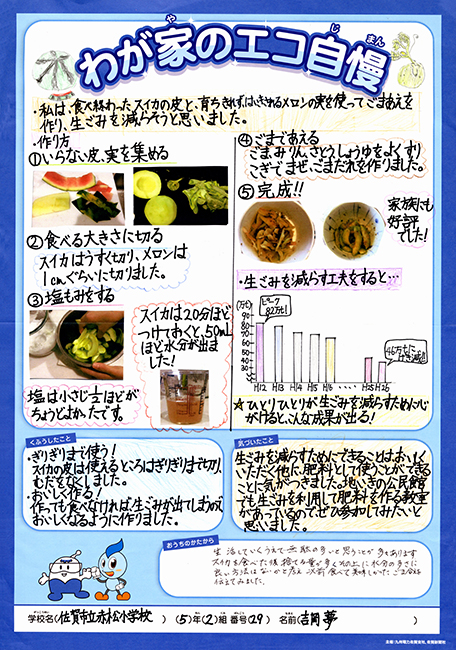 わが家のエコ自慢
や
じまん
・私は、食べ終わったスイカの皮と、育ちきれず
メロンの実を使ってごまあえを
作り、生ごみを減らそうと思いました。
・作り方
①いらない皮、実を集める
②食べる大きさに切る
スイカはうすく切り、メロンは
1cmぐらいに切りました。
③塩もみをする
スイカは20分ほど
つけておくと、50mL
ほど水分が出ま
した!
塩は小さじ½ほどが
ちょうどよかったです。
④ごまであえる
ごま、みりん、さとう、しょうゆをよくすり
こぎでまぜ、ごまだれを作りました。
⑤完成!!
家族にも
好評
でした!
・生ごみを減らす工夫をすると…
(万t)
ピーク
82万t!
90
80
70
60
50
40
30
H12 H13 H14 H15 H16 ・・・・ H25 H26
☆ひとりひとりが生ごみを減らすために心
がけると、こんな成果が出る!
くふうしたこと
・ぎりぎりまで使う!
スイカの皮は使えるところはぎりぎりまで切り、
むだをなくしました。
・おいしく作る!
作っても食べなければ、生ごみが出てしまうので
おいしくなるように作りました。
気づいたこと
生ごみを減らすためにできることはおいしく
いただく他に、肥料として使うことができる
ことに気がつきました。地いきの公民館
でも生ごみを利用して肥料を作る教室
があっているのでぜひ参加してみたいと
思いました。
おうちのかたから
生活していくうえで無駄の多いと思うことが多々あります
スイカを食べた後、捨てる量が多く、その上に水分の多さに
良い方法はないかと考え
伝えてみました。
学校名(佐賀市立赤松小学校 ) (5)年(2)組 番号(29) 名前(吉岡 夢 )
主催:九州電力佐賀支社、佐賀新聞社